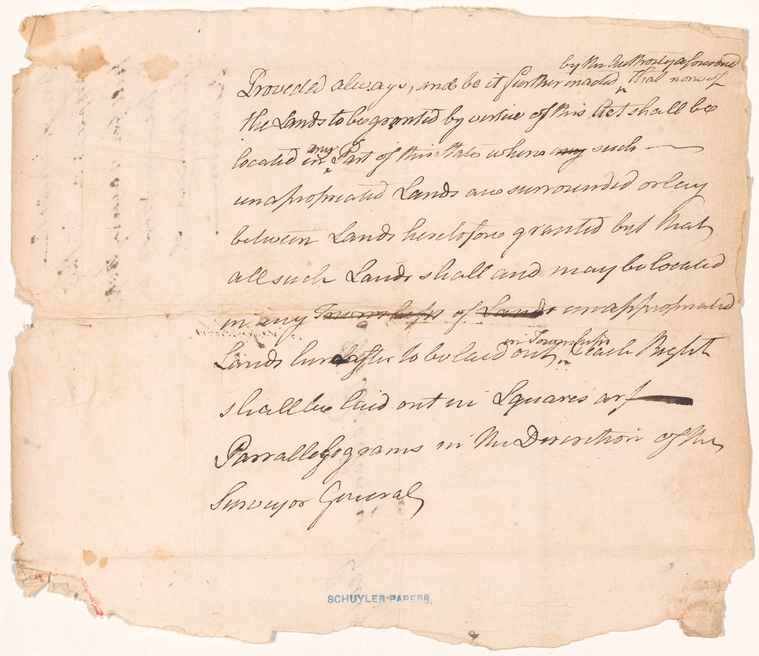 by the Authority aforesaid
Provided always, and be it further enacted that none of
the Lands to be granted by virtue of this Act shall be
located in any Part of this State where any such
unapropriated Lands are surrounded or lay
between Lands heretofore granted but that
all such Lands shall and may be located
in any Townships of Lands unappropriated
in Townships
Lands hereafter to be laid out, each Right
shall be laid out in Squares or
Parrallelograms in the Discretion of the
Surveyor General
SCHUYLER PAPERS.